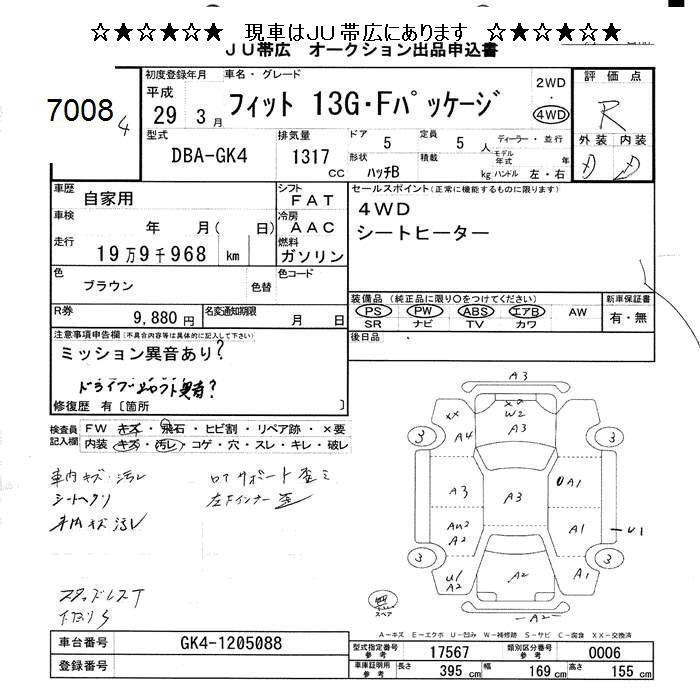 ☆★☆★☆★ 現車はJU帯広にあります ☆★☆★☆★
JU帯広 オークション出品申込書
7008
4
初度登録年月 車名・グレード
平成
29 3 月
フィット 13G・Fパッケージ
2WD
・
4WD
評価点
R
外装 内装
型式
DBA-GK4
排気量
1317
CC
ドア 5 定員 5 人
形状 ハッチB 積載 kg
ディーラー・並行
モデル年式 年
ハンドル 左・右
車歴
自家用
シフト
FAT
車検
年 月( 日)
冷房
AAC
走行
19万9千968 km
燃料
ガソリン
色
ブラウン
色替
色コード
R券
9,880円
名変通知期限
月 日
セールスポイント(正常に機能するものに限ります)
4WD
シートヒーター
装備品(純正品に限り○をつけてください)
PS PW ABS エアB AW
SR ナビ TV カワ
新車保証書
有・無
後日品
注意事項申告欄(不具合内容等は具体的に記入して下さい)
ミッション異音あり?
修復歴 有〔箇所 〕
検査員
記入欄
FW キズ・飛石・ヒビ割・リペア跡・×要
内装 キズ・汚レ・コゲ・穴・スレ・キレ・破レ
車内キズ・汚レ
スタッドレスT
スペア
A3
XX
A4
W2
A3
3
3
A3
A3
U A1
A2
A1
U1
3
3
U1
A2
A2
A1
A2
A-キズ E-エクボ U-凹み W-補修跡 S-サビ C-腐食 XX-交換済
車台番号
GK4-1205088
登録番号
型式指定番号
参考
17567
類別区分番号
参考
0006
車庫証明用
参考
長さ 395 cm 幅 169 cm 高さ 155 cm